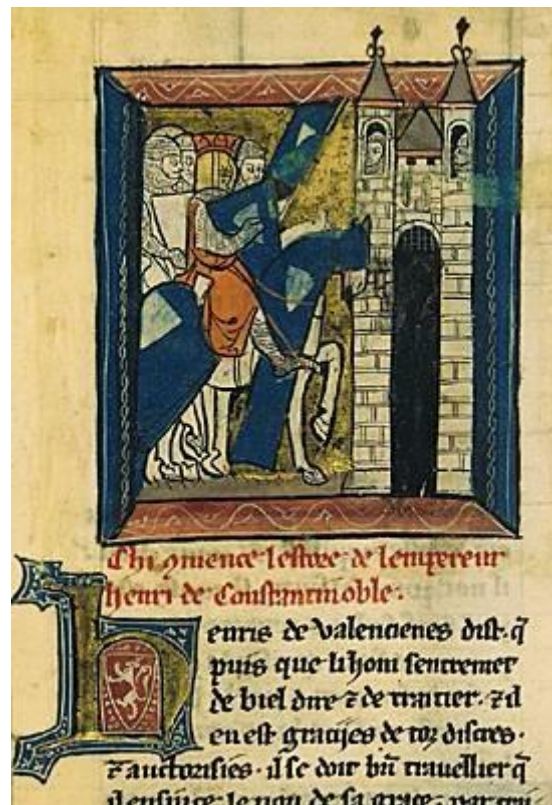 Chi ꝯmence lestore de lempereur
henri de Constantinoble.
henris de valencienes dist. q̃
puis que li hom sentremet
de biel dire ⁊ de traitier. ⁊ il
en est graciies de toz discres.
⁊ auctorisies. il se doit bñ trauellier q̃
il ensiuce le non de sa grace.